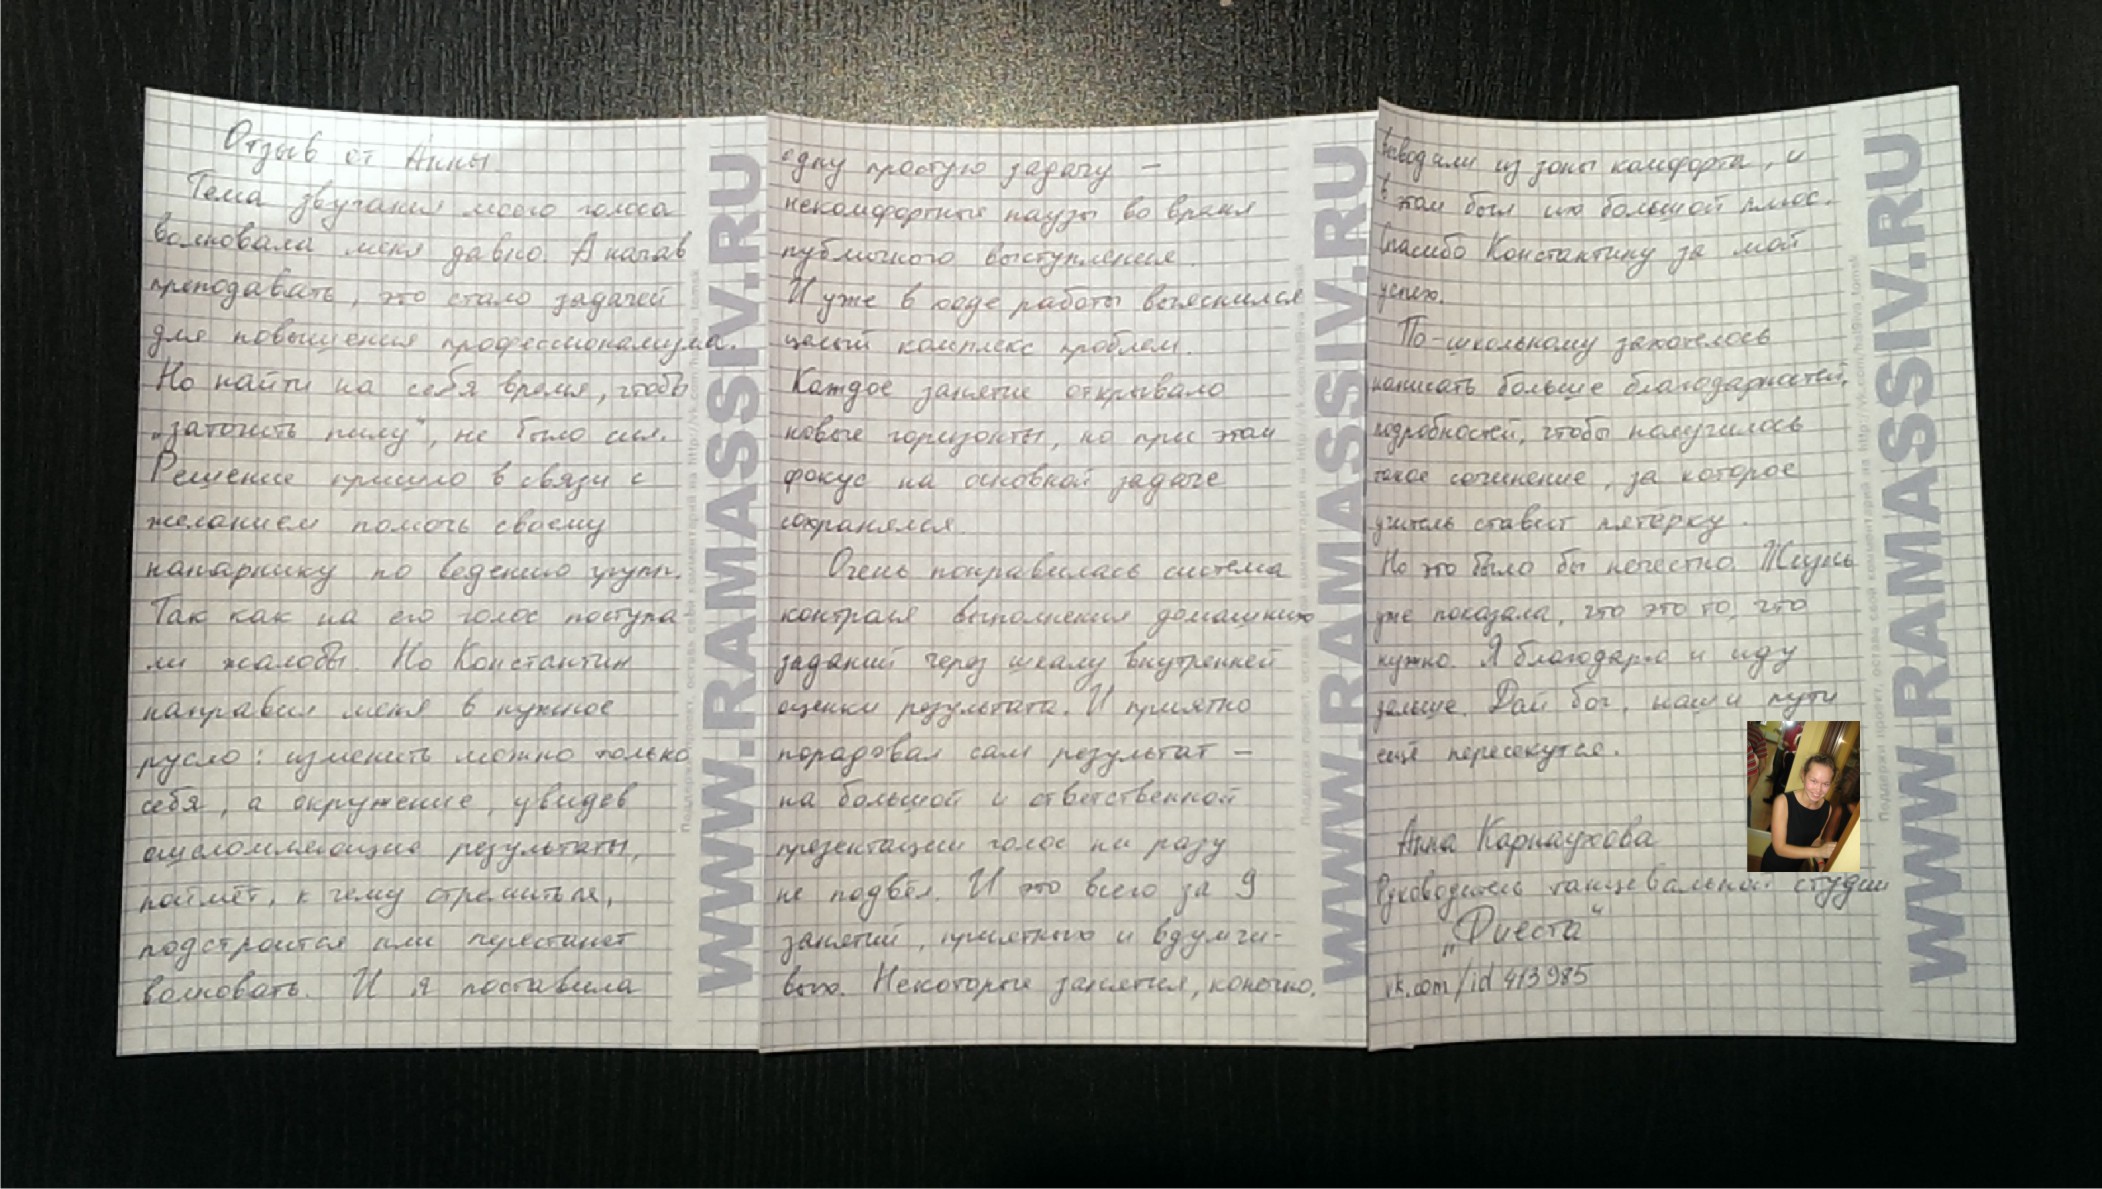 Отзыв от Анны.
Тема звучания моего голоса
волновала меня давно. А начав
преподавать, это стало задачей
для повышения профессионализма.
Но найти на себя время, чтобы
„заточить пилу", не было сил.
Решение пришло в связи с
желанием помочь своему
напарнику по ведению групп.
Так как на его голос поступа
ли жалобы. Но Константин
направил меня в нужное
русло: изменить можно только
себя, а окружение, увидев
ошеломляющие результаты,
поймёт, к чему стремиться,
подстроится или перестанет
волновать. И я поставила
WWW.RAMASSIV.RU
одну простую задачу –
некомфортные паузы во время
публичного выступления.
И уже в ходе работы выяснился
целый комплекс проблем.
Каждое занятие открывало
новые горизонты, но при этом
фокус на основной задаче
сохранялся.
Очень понравилась система
контроля выполнения домашних
заданий через шкалу внутренней
оценки результата. И приятно
порадовал сам результат –
на большой и ответственной
презентации голос ни разу
не подвёл. И это всего за 9
занятий, приятных и вдумчи-
вых. Некоторые занятия, конечно,
WWW.RAMASSIV.RU
выводили из зоны комфорта, и
в этом был их большой плюс.
Спасибо Константину за мой
успех.
По-школьному захотелось
написать больше благодарностей,
подробностей, чтобы получилось
такое сочинение, за которое
учитель ставит пятёрку.
Но это было бы нечестно. Жизнь
уже показала, что это то, что
нужно. Я благодарю и иду
дальше. Дай бог, наши пути
ещё пересекутся.
Анна Карнаухова
Руководитель танцевальной студии
„Фиеста"
vk.com/id413985
WWW.RAMASSIV.RU